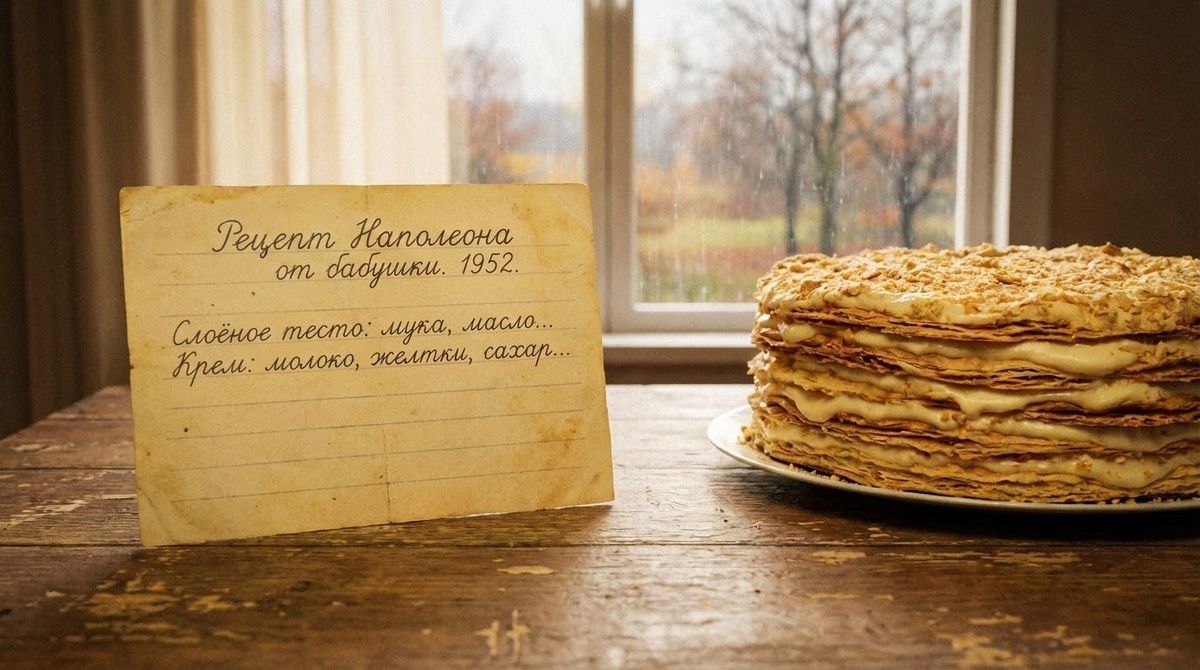 Рецепт Наполеона
от бабушки. 1952.
Слоёное тесто: мука, масло...
Крем: молоко, желтки, сахар...